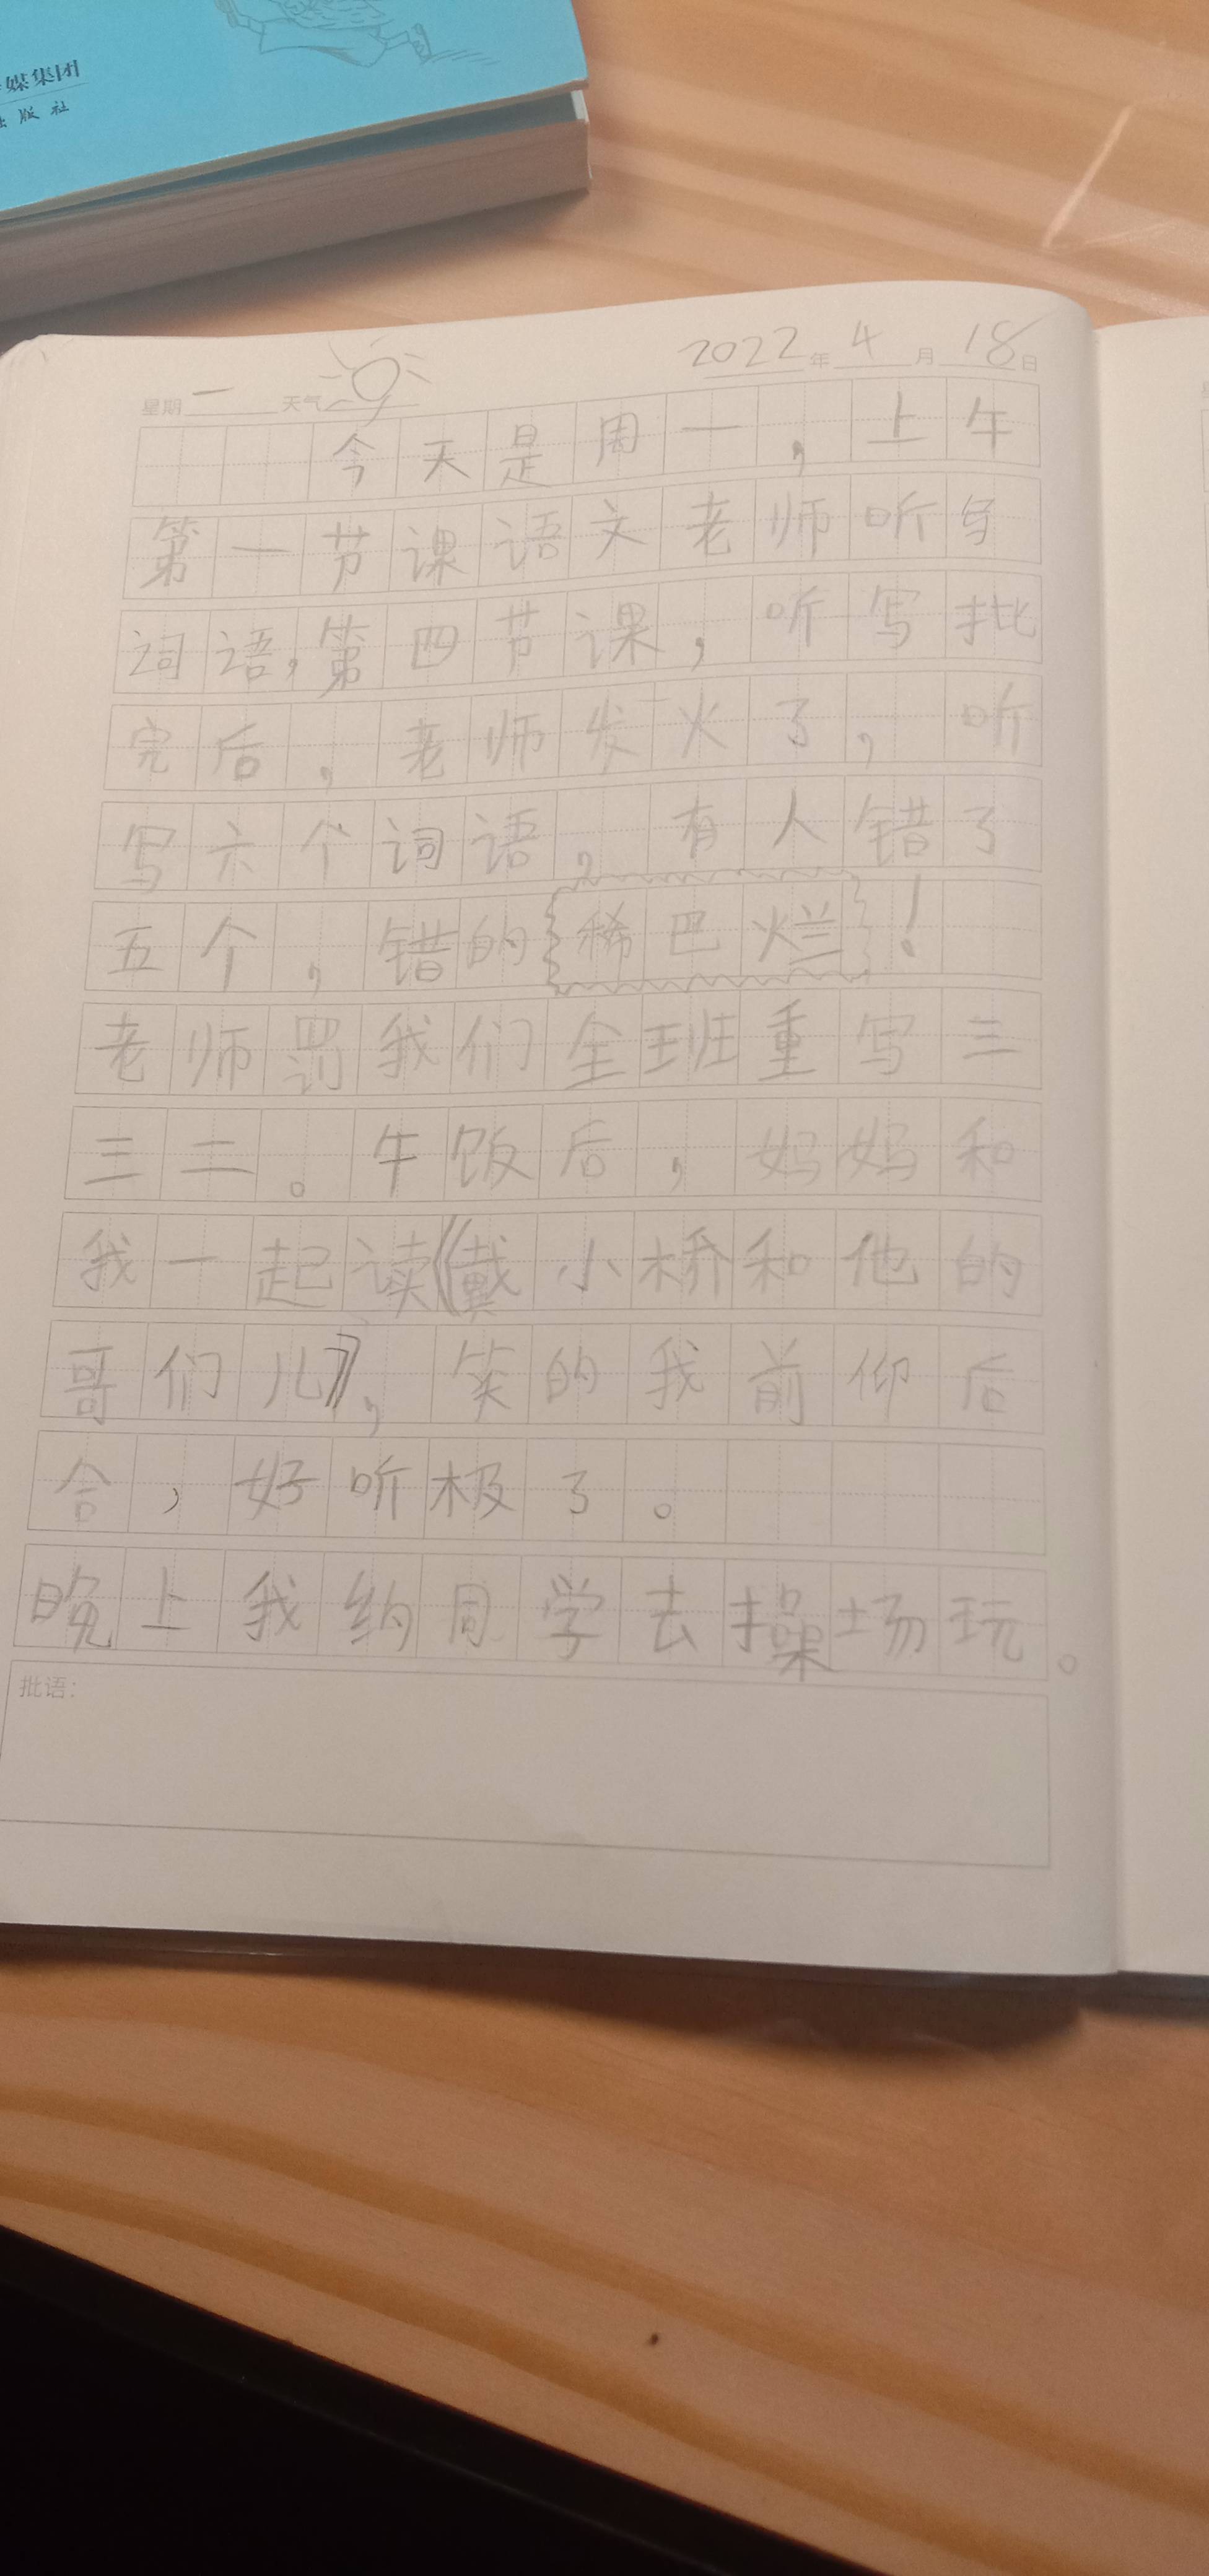 媒集团
出版社
2022年4月18日
星期一 天气
今天是周一，上午
第一节课语文老师听写
词语，第四节课，听写批
完后，老师发火了，听
写六个词语，有人错了
五个，错的稀巴烂！
老师罚我们全班重写三
三二。午饭后，妈妈和
我一起读《戴小桥和他的
哥们儿》，笑的我前仰后
合，好听极了。
晚上我约同学去操场玩。
批语：